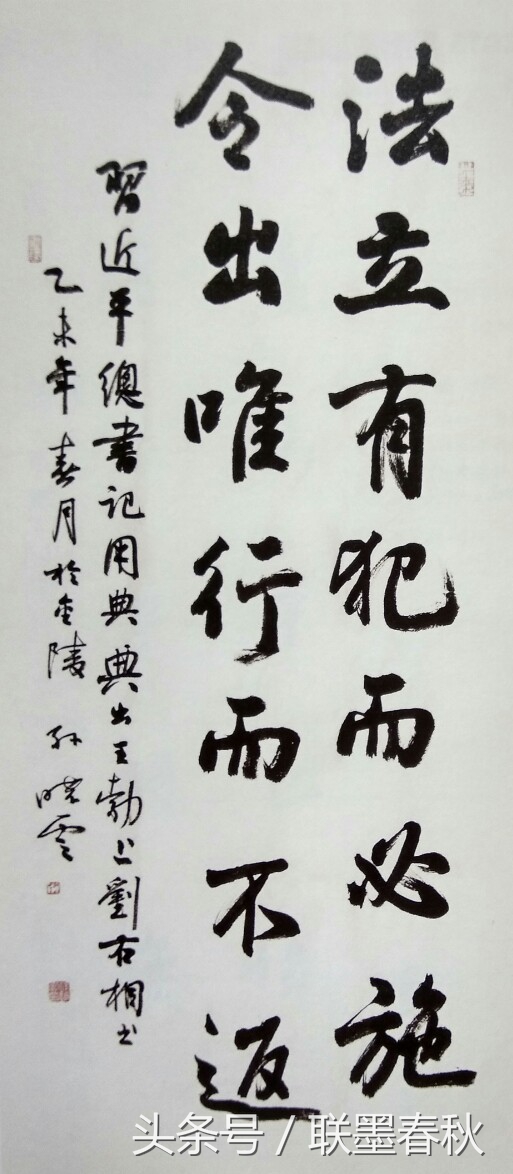 法立有犯而必施
令出唯行而不返
習近平總書记用典典出王勃上劉右相书
乙未年春月於金陵孙晓雲
头条号/联墨春秋